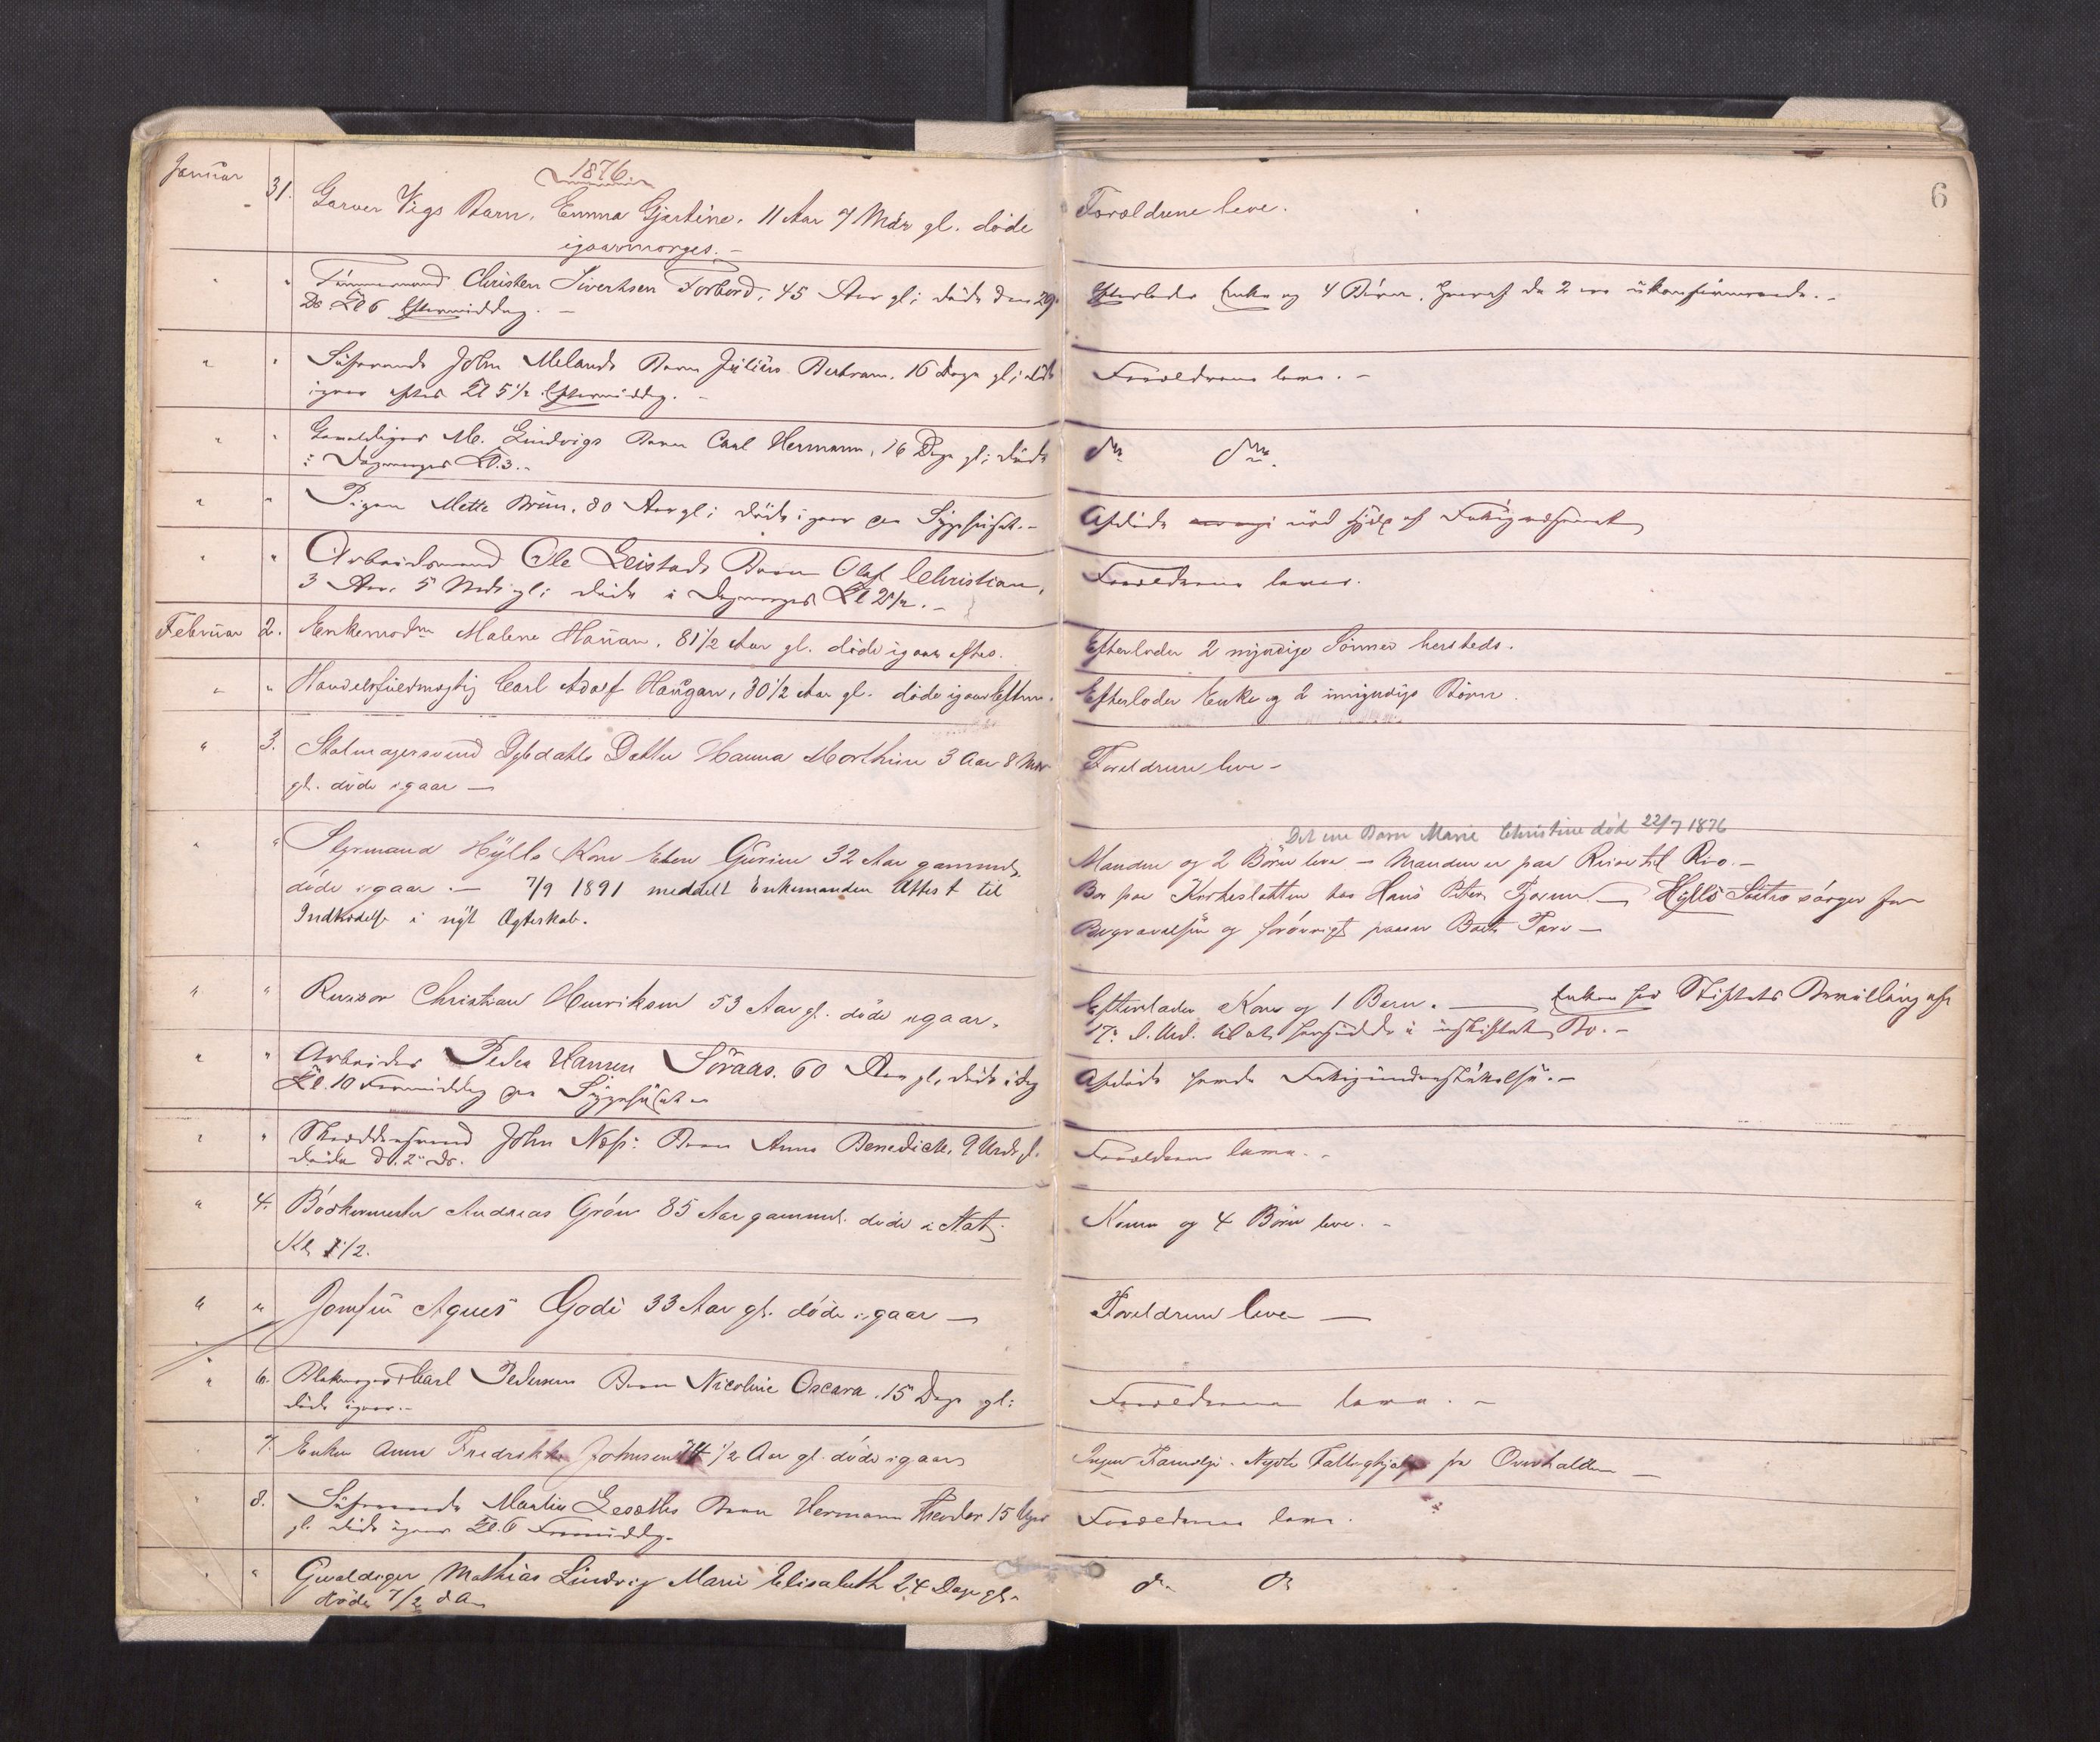 6
1876.
Januar 31. Garver Vigs Barn, Emma Gjertine, 11 Aar 7 Mdr gl. døde
igaarmorges.
Forældrene leve.
" " Tømmermand Christen Sivertsen Forbord, 45 Aar gl; døde den 29
Ds Kl 6 Eftermiddag.
Efterlader Enke og 4 Børn, hvoraf de 2 ere ukonfirmerede.
" " John Melands Barn Julius Bertram, 16 Dage gl; døde
igaar efter Kl 5 1/2 Eftermiddag.
Forældrene leve.
" " Gevaldiger M. Lindvigs Barn Carl Hermann, 16 Dage gl; døde
i Dagmorges Kl. 3.
do do.
" " Pigen Mette Brun, 80 Aar gl; døde igaar paa Sygehuset.
Afdøde nød hjælp af
" " Arbeidsmand Ole Leistads Barn Olaf Christian,
3 Aar, 5 Mdr gl; døde i Dagmorges Kl 2 1/2.
Forældrene lever.
Februar 2. Enkemadm Malene Hanan, 81 1/2 Aar gl. døde igaar aftes.
Efterlader 2 myndige Sønner hersteds.
" " Handelsfuldmægtig Carl Adolf Haugan, 30 1/2 Aar gl. døde igaar Efterm.
Efterlader Enke og 2 umyndige Børn.
" 3. Salmagersvend Dybdahls Datter Hanna Marthine 3 Aar 8 Mdr
gl. døde igaar —
Foreldrene leve —
" " Styrmand Hylls Kone Elen Gurine 32 Aar gammel,
døde igaar. — 7/9 1891 meddelt Enkemanden Attest til
Indtrædelse i nyt Ægteskab.
Det ene Barn Marie Christine død 22/7 1876
Manden og 2 Børn leve — Manden er paa Reise til Rio. —
Bor paa Korheslatten hos Hans Peter — Hylls Søster sørger for
Begravelsen og forøvrigt passer Boets Tarv —
" " Revisor Christian Henriksen 53 Aar gl. døde igaar.
Efterlader Kone og 1 Barn. — Enken har Stiftets Bevilling af
17. til at hensidde i uskiftet Bo. —
" " Arbeider Peder Hansen Söraas. 60 Aar gl. døde idag
Kl. 10 Formiddag paa Sygehuset —
Afdøde havde Fattigunderstøttelse. —
" " Skræddersvend John Næss: Barn Anna Benedicte, 9 gl.
døde d. 2 ds.
Forældrene leve.
" 4. Bødkermester Andreas Grøn 85 Aar gammel. døde i Nat
Kl 1 1/2.
Konen og 4 Børn leve. —
" " Jomfru Agnes Gode 33 Aar gl. døde igaar —
Foreldrene leve —
" 6. Carl Pedersens Barn Nicoline Oscara, 15 Dage gl:
døde igaar. —
Forældrene leve. —
" 7. Enken Anne Fredrikke Johnsen 74 1/2 Aar gl. døde igaar
Ingen Familje. Nydt Fattighjælp fra Overhalden —
" 8. Martin Barn Hermann Theodor 15 Uger
gl. døde igaar Kl. 6 Formiddag.
Forældrene leve.
" " Gevaldiger Mathias Lindvig Marie Elisabeth 24 Dage gl.
døde 7/2 d A
do do